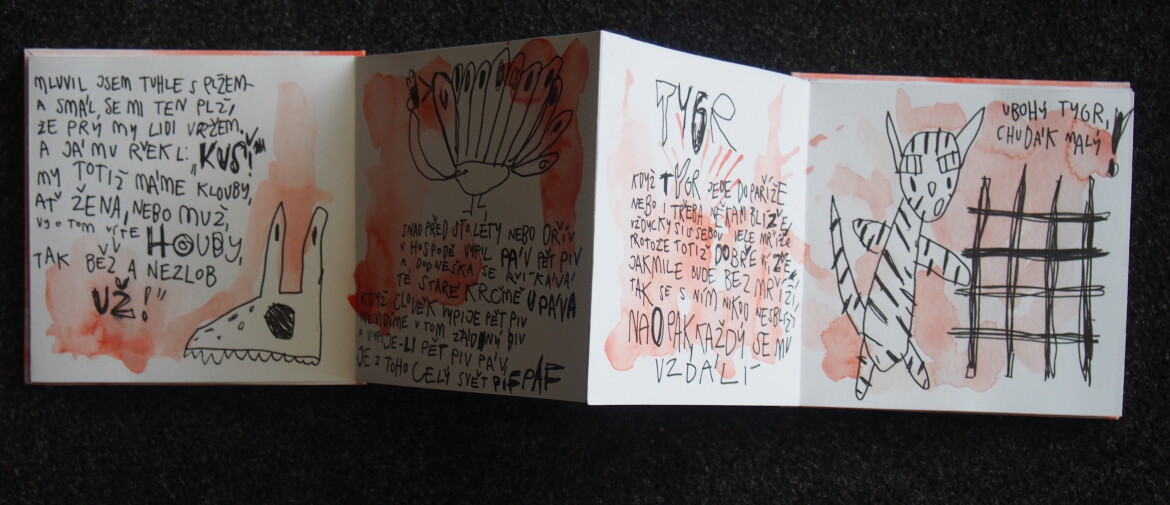 MLUVIL JSEM TUHLE S PLŽEM
A SMÁL SE MI TEN PLŽ,
ŽE PRÝ MY LIDI VRŽEM.
A JÁ MU ŘEKL: „KUŠ!
MY TOTIŽ MÁME KLOUBY,
AŤ ŽENA, NEBO MUŽ,
VY O TOM VÍTE HOUBY,
TAK BĚŽ A NEZLOB
UŽ!"
SNAD PŘED STO LÉTY NEBO DŘÍV
V HOSPODĚ VYPIL PÁV PĚT PIV
A DODNEŠKA SE ŘÍKÁVÁ
TÉ STARÉ KRČMĚ U PÁVA
KDYŽ ČLOVĚK VYPIJE PĚT PIV
NEVIDÍME V TOM ŽÁDNÝ DIV
A VYPIJE-LI PĚT PIV PÁV,
JE Z TOHO CELÝ SVĚT PIF PAF
TYGR
KDYŽ TYGR JEDE DO PAŘÍŽE
NEBO I TŘEBA NĚKAM BLÍŽE,
VŽDYCKY SI S SEBOU VEZE MŘÍŽE
PROTOŽE TOTIŽ DOBŘE VÍ, ŽE
JAKMILE BUDE BEZ MŘÍŽÍ,
TAK SE S NÍM NIKDO NESBLÍŽÍ
NAOPAK KAŽDÝ SE MU
VZDÁLÍ
UBOHÝ TYGR,
CHUDÁK MALÝ!